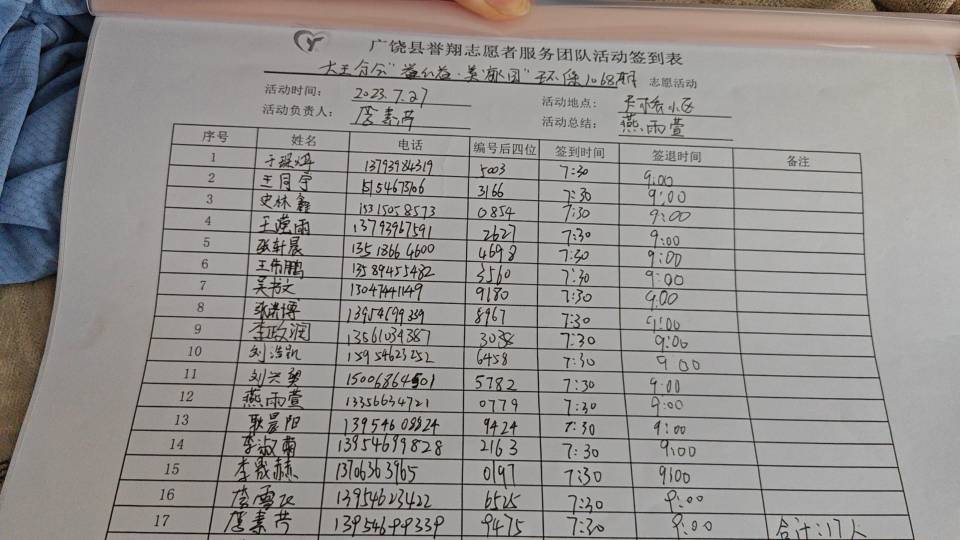 广饶县誉翔志愿者服务团队活动签到表
大王分会"益公益·美家园"环保1068期 志愿活动
活动时间: 2023.7.27 活动地点: 小区
活动负责人: 素芹 活动总结: 燕雨萱
序号 姓名 电话 编号后四位 签到时间 签退时间 备注
1 13793984319 5003 7:30 9:00
2 王同宇 15154675106 3166 7:30 9:00
3 史林鑫 15315058573 0854 7:30 9:00
4 王滢雨 13793967591 2627 7:30 9:00
5 张轩晨 13518664600 4698 7:30 9:00
6 王伟鹏 13589455482 3560 7:30 9:00
7 吴书文 13047441149 9180 7:30 9:00
8 张洪博 13954699339 8967 7:30 9:00
9 李政润 13561034387 3038 7:30 9:00
10 刘浩凯 15954623252 6458 7:30 9:00
11 刘兴奥 15006864501 5782 7:30 9:00
12 燕雨萱 13356634721 0779 7:30 9:00
13 耿晨阳 13954608824 9424 7:30 9:00
14 李淑菊 13954699828 2163 7:30 9:00
15 李晟赫 13706363965 0197 7:30 9:00
16 13954623422 6525 7:30 9:00
17 素芹 13954699339 9475 7:30 9:00 合计:17人